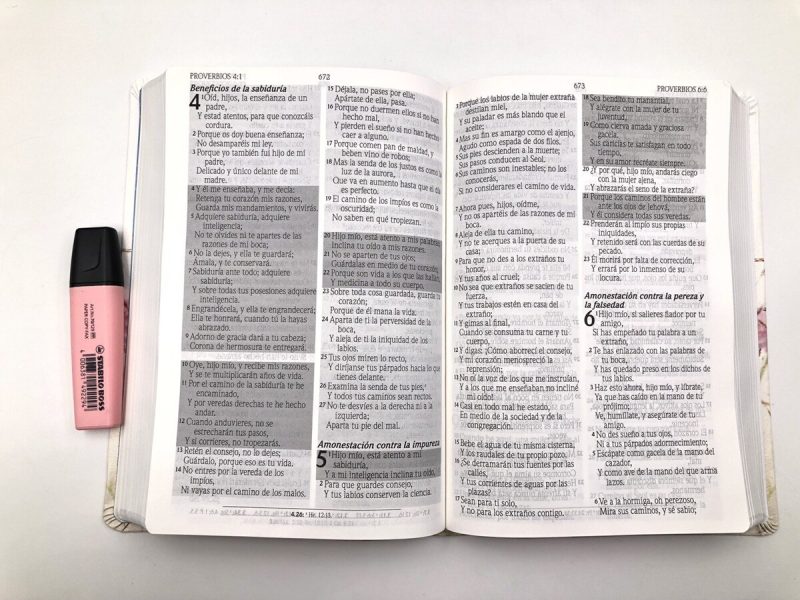 PROVERBIOS 4:1
672
Beneficios de la sabiduría
4 1Oíd, hijos, la enseñanza de un
padre,
Y estad atentos, para que conozcáis
cordura.
2 Porque os doy buena enseñanza;
No desamparéis mi ley.
3 Porque yo también fui hijo de mi
padre,
Delicado y único delante de mi
madre.
4 Y él me enseñaba, y me decía:
Retenga tu corazón mis razones,
Guarda mis mandamientos, y vivirás.
5 Adquiere sabiduría, adquiere
inteligencia;
No te olvides ni te apartes de las
razones de mi boca;
6 No la dejes, y ella te guardará;
Ámala, y te conservará.
7 Sabiduría ante todo; adquiere
sabiduría;
Y sobre todas tus posesiones adquiere
inteligencia.
8 Engrandécela, y ella te engrandecerá;
Ella te honrará, cuando tú la hayas
abrazado.
9 Adorno de gracia dará a tu cabeza;
Corona de hermosura te entregará.
10 Oye, hijo mío, y recibe mis razones,
Y se te multiplicarán años de vida.
11 Por el camino de la sabiduría te he
encaminado,
Y por veredas derechas te he hecho
andar.
12 Cuando anduvieres, no se
estrecharán tus pasos,
Y si corrieres, no tropezarás.
13 Retén el consejo, no lo dejes;
Guárdalo, porque eso es tu vida.
14 No entres por la vereda de los
impíos,
Ni vayas por el camino de los malos.
15 Déjala, no pases por ella;
Apártate de ella, pasa.
16 Porque no duermen ellos si no han
hecho mal,
Y pierden el sueño si no han hecho
caer a alguno.
17 Porque comen pan de maldad, y
beben vino de robos;
18 Mas la senda de los justos es como la
luz de la aurora,
Que va en aumento hasta que el día
es perfecto.
19 El camino de los impíos es como la
oscuridad;
No saben en qué tropiezan.
20 Hijo mío, está atento a mis palabras;
Inclina tu oído a mis razones.
21 No se aparten de tus ojos;
Guárdalas en medio de tu corazón;
22 Porque son vida a los que las hallan,
Y medicina a todo su cuerpo.
23 Sobre toda cosa guardada, guarda tu
corazón;
Porque de él mana la vida.
24 Aparta de ti la perversidad de la
boca,
Y aleja de ti la iniquidad de los
labios.
25 Tus ojos miren lo recto,
Y diríjanse tus párpados hacia lo que
tienes delante.
26 Examina la senda de tus pies,
Y todos tus caminos sean rectos.
27 No te desvíes a la derecha ni a la
izquierda;
Aparta tu pie del mal.
Amonestación contra la impureza
5 1Hijo mío, está atento a mi
sabiduría,
Y a mi inteligencia inclina tu oído,
2 Para que guardes consejo,
Y tus labios conserven la ciencia.
4.26: Hé. 12:13.
673
PROVERBIOS 6:6
3 Porque los labios de la mujer extraña
destilan miel,
Y su paladar es más blando que el
aceite;
4 Mas su fin es amargo como el ajenjo,
Agudo como espada de dos filos.
5 Sus pies descienden a la muerte;
Sus pasos conducen al Seol.
6 Sus caminos son inestables; no los
conocerás,
Si no considerares el camino de vida.
7 Ahora pues, hijos, oídme,
Y no os apartéis de las razones de mi
boca.
8 Aleja de ella tu camino,
Y no te acerques a la puerta de su
casa;
9 Para que no des a los extraños tu
honor,
Y tus años al cruel;
10 No sea que extraños se sacien de tu
fuerza,
Y tus trabajos estén en casa del
extraño;
11 Y gimas al final,
Cuando se consuma tu carne y tu
cuerpo,
12 Y digas: ¡Cómo aborrecí el consejo,
Y mi corazón menospreció la
reprensión;
13 No oí la voz de los que me instruían,
Y a los que me enseñaban no incliné
mi oído!
14 Casi en todo mal he estado,
En medio de la sociedad y de la
congregación.
15 Bebe el agua de tu misma cisterna,
Y los raudales de tu propio pozo.
16 ¿Se derramarán tus fuentes por las
calles,
Y tus corrientes de aguas por las
plazas?
17 Sean para ti solo,
Y no para los extraños contigo.
18 Sea bendito tu manantial,
Y alégrate con la mujer de tu
juventud,
19 Como cierva amada y graciosa
gacela.
Sus caricias te satisfagan en todo
tiempo,
Y en su amor recréate siempre.
20 ¿Y por qué, hijo mío, andarás ciego
con la mujer ajena,
Y abrazarás el seno de la extraña?
21 Porque los caminos del hombre están
ante los ojos de Jehová,
Y él considera todas sus veredas.
22 Prenderán al impío sus propias
iniquidades,
Y retenido será con las cuerdas de su
pecado.
23 Él morirá por falta de corrección,
Y errará por lo inmenso de su
locura.
Amonestación contra la pereza y
la falsedad
6 1Hijo mío, si salieres fiador por tu
amigo,
Si has empeñado tu palabra a un
extraño,
2 Te has enlazado con las palabras de
tu boca,
Y has quedado preso en los dichos de
tus labios.
3 Haz esto ahora, hijo mío, y líbrate,
Ya que has caído en la mano de tu
prójimo;
Ve, humíllate, y asegúrate de tu
amigo.
4 No des sueño a tus ojos,
Ni a tus párpados adormecimiento;
5 Escápate como gacela de la mano del
cazador,
Y como ave de la mano del que arma
lazos.
6 Ve a la hormiga, oh perezoso,
Mira sus caminos, y sé sabio;
STABILO BOSS